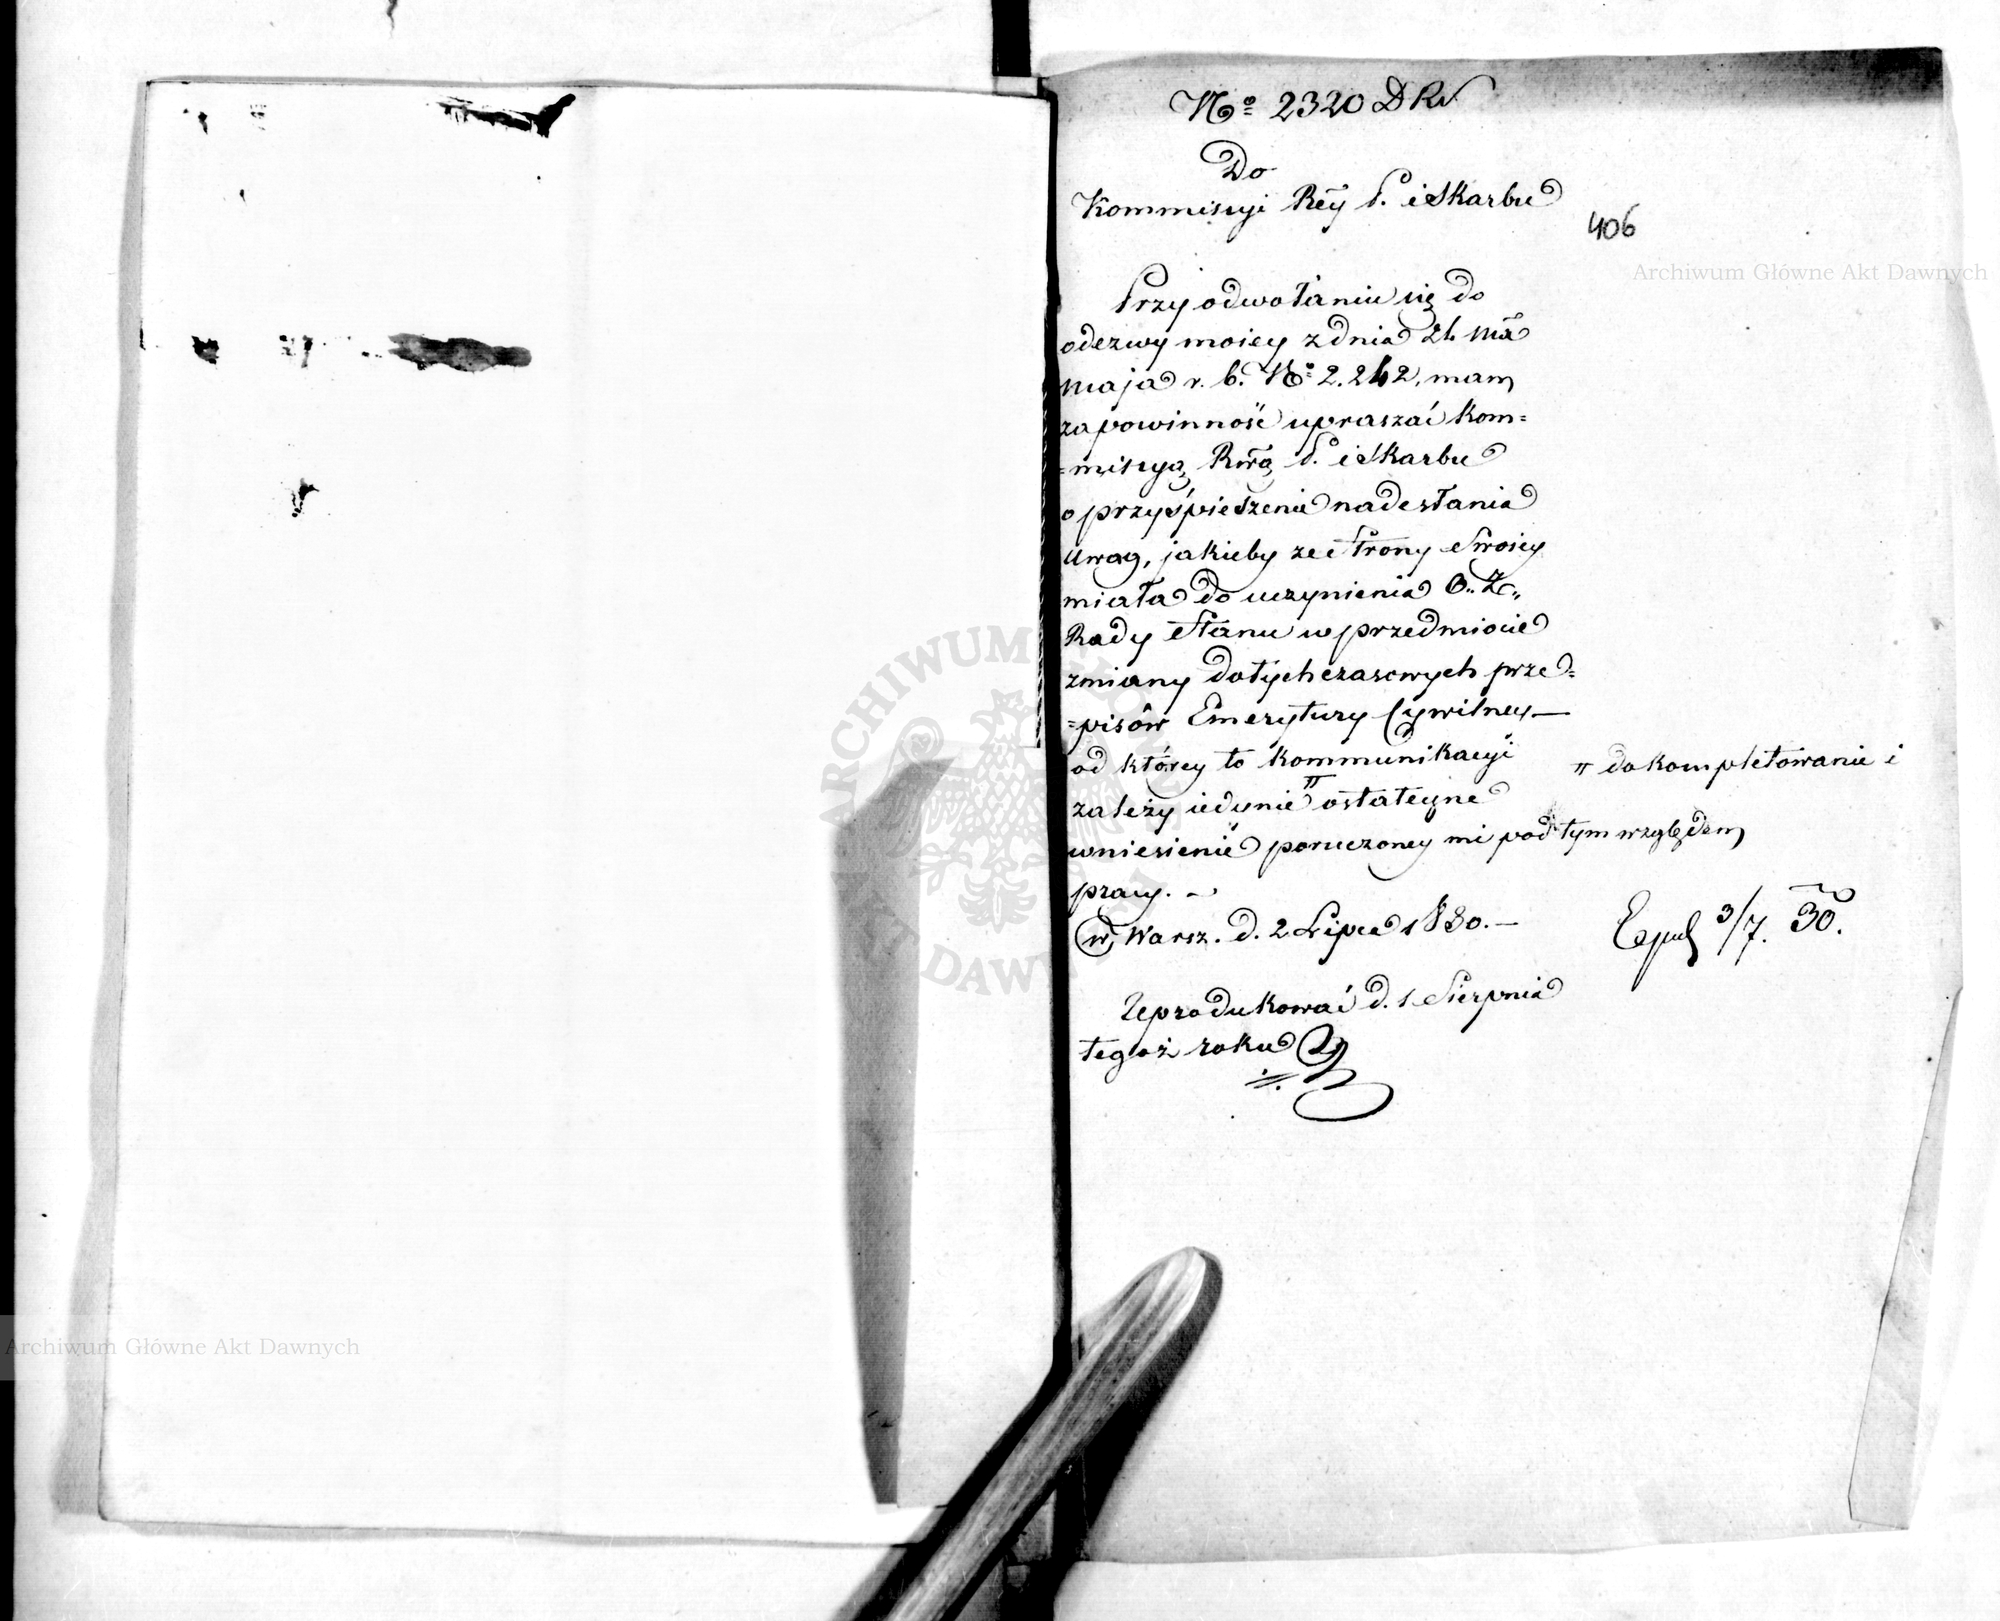 No 2320 DRS
Do
Kommisyi Rej P. i Skarbu
406
Przy odwołaniu się do
odezwy moiey z dnia 2h ma
maja r. b. No 2.242, mam
za powinność upraszać Kom=
=misyą Rwą P. i Skarbu
o przyśpieszenie nadesłania
uwag, jakieby ze Strony Swoiey
miała do uczynienia O. Z.
Rady Stanu w przedmiocie
zmiany dotychczasowych prze=
=pisów Emerytury Cywilney —
od którey to Kommunikacyi
zależy iedynie " ostateczne
" dokompletowanie i
wniesienie poruczoney mi pod tym względem
pracy. —
w Warsz. d. 2 Lipca 1830. —
Exped 3/7. 30.
Reprodukować d. 1 Sierpnia
tegoż roku
Archiwum Główne Akt Dawnych
Archiwum Główne Akt Dawnych